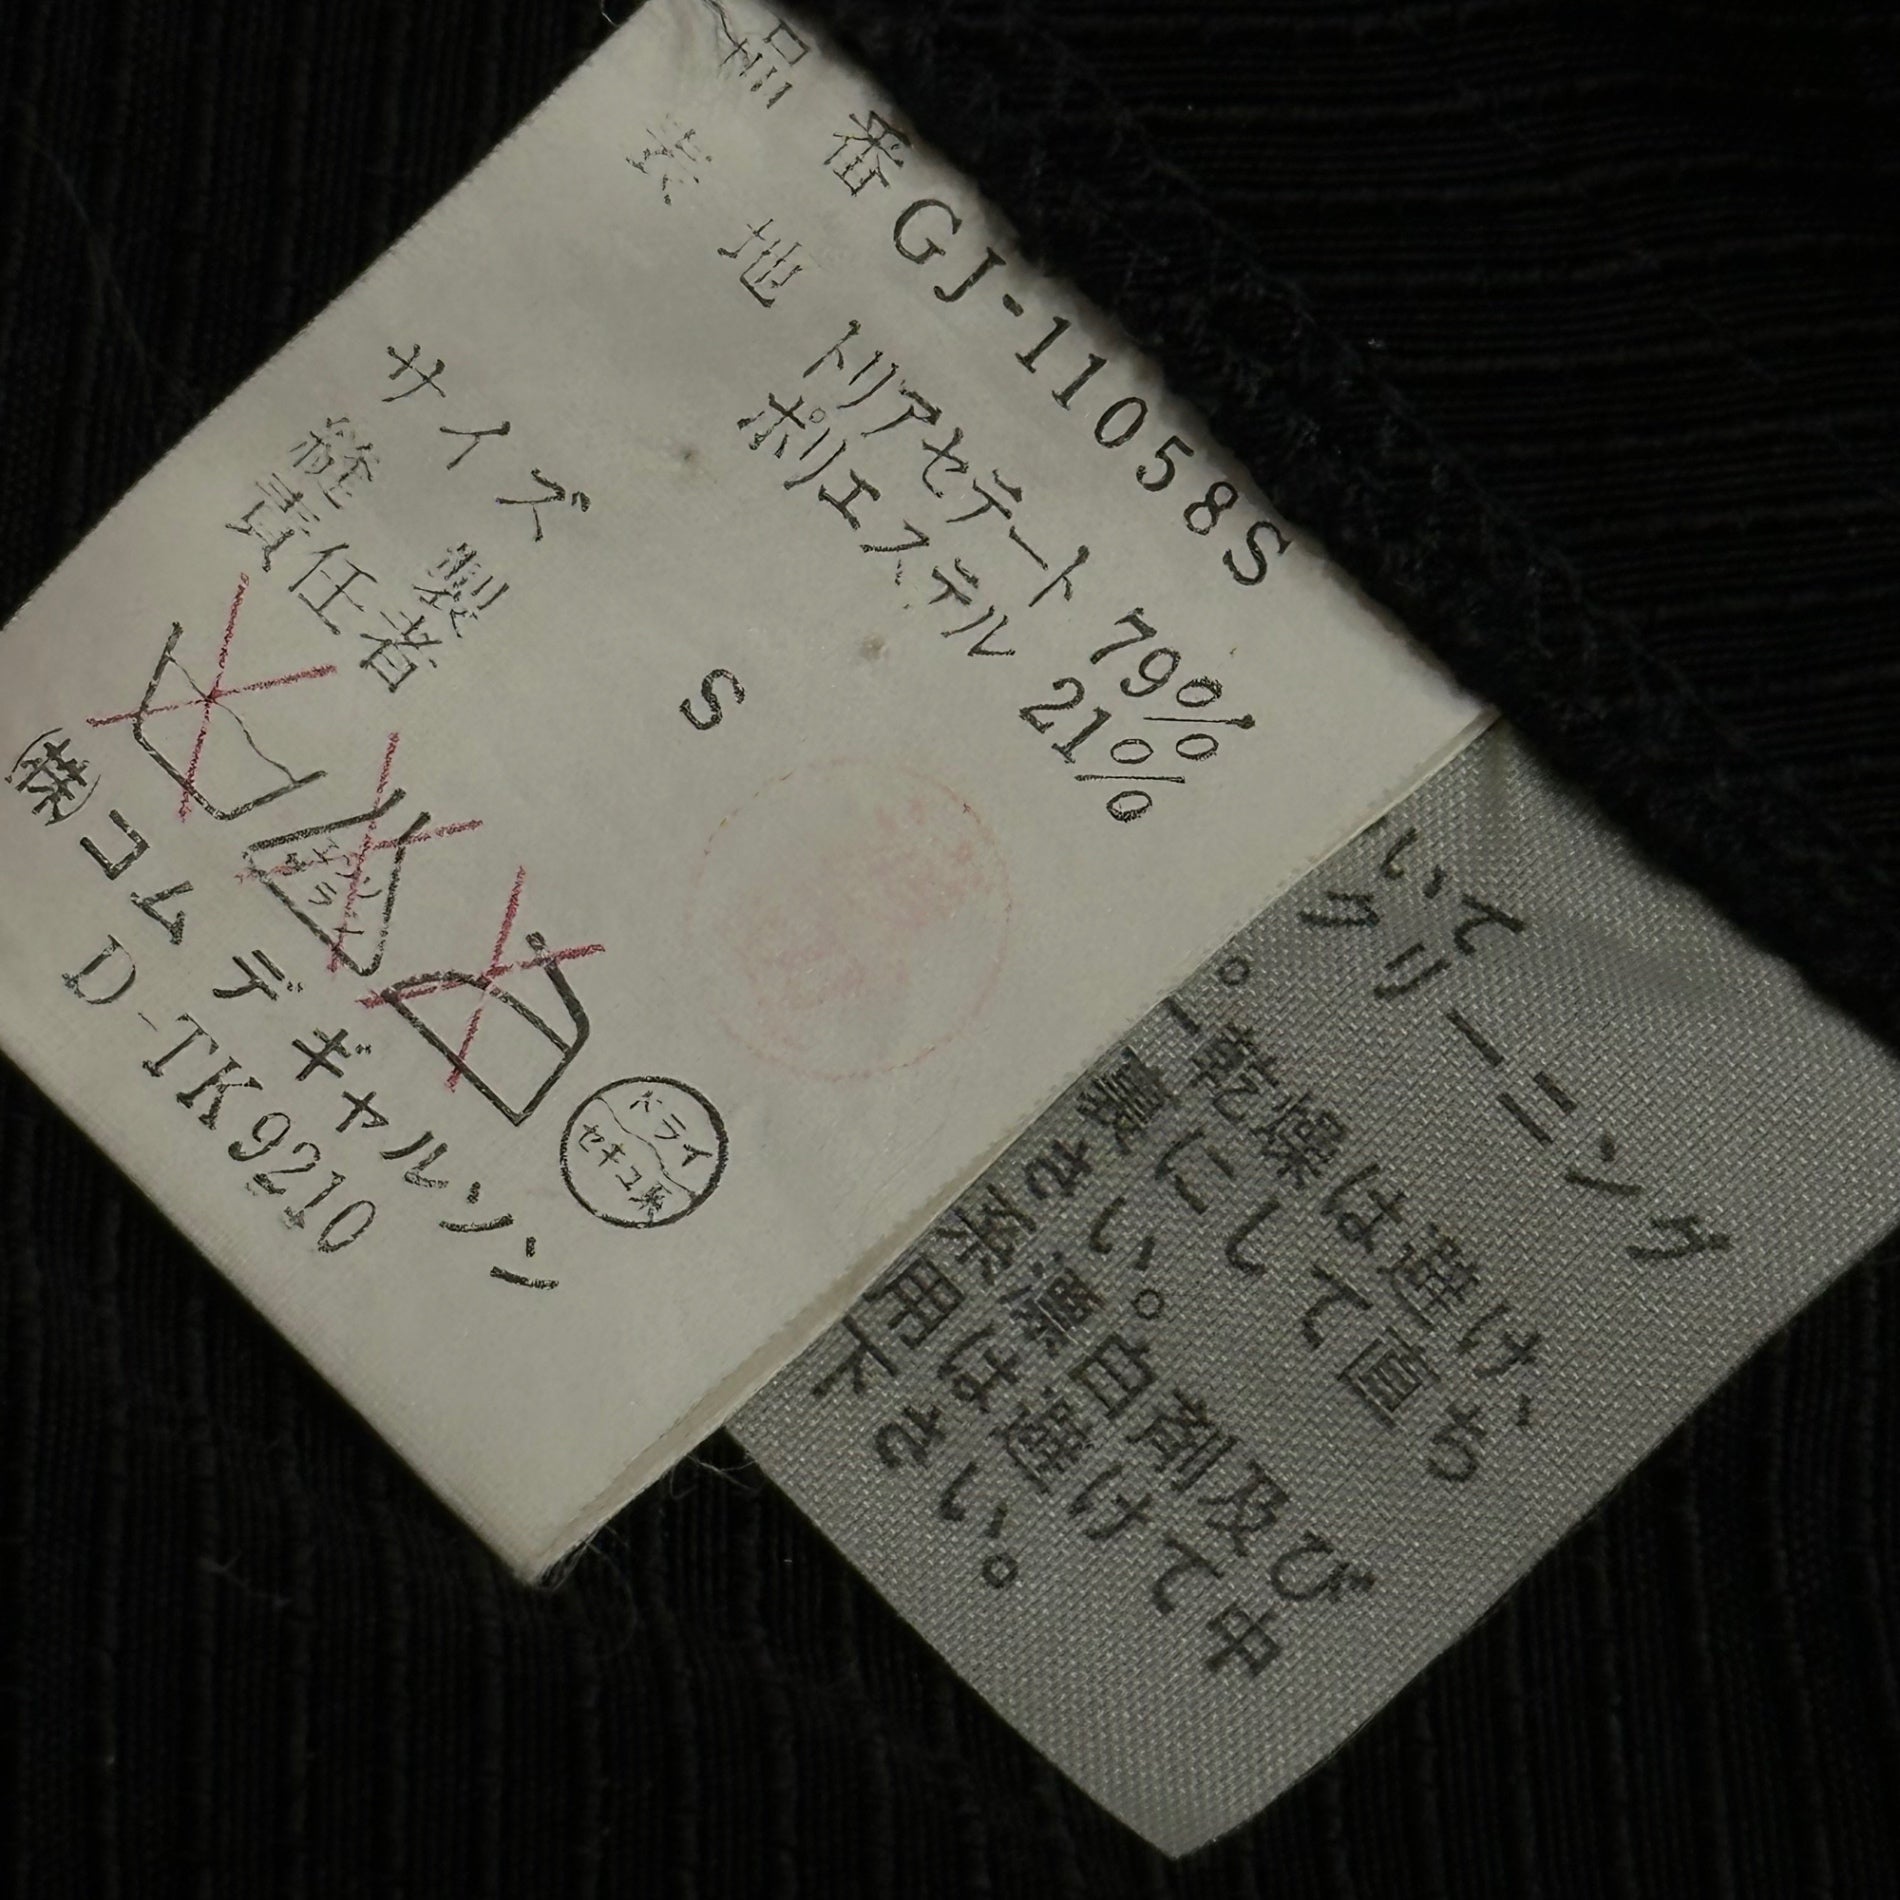 品番 GJ-11058S
表地 トリアセテート 79%
ポリエステル 21%
サイズ S
縫製
責任者
エンソ
サラシ
ドライ
セキユ系
(株)コムデギャルソン
D-TK9210
いて
クリーニング
。
乾燥は避け、
にして直ち
裏
漂白剤及び
さい。
は避けて中
用下さい。